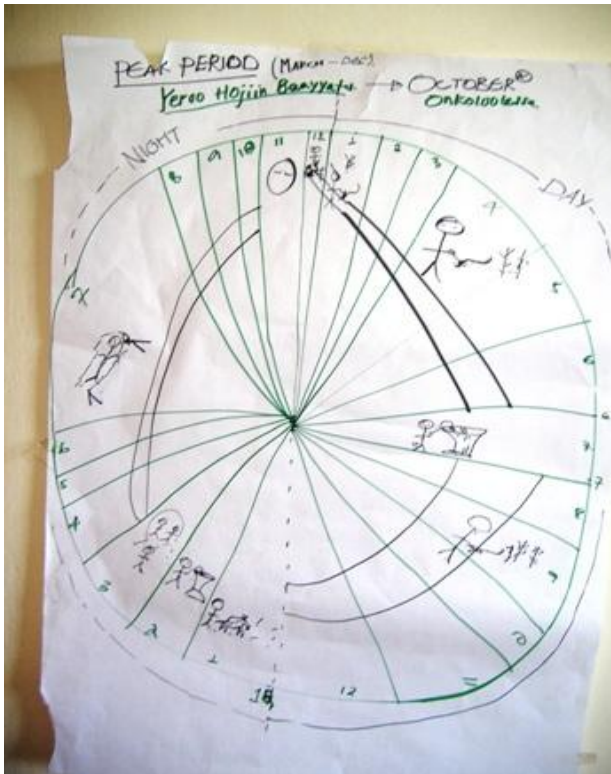 PEAK PERIOD (MARCH - DEC)
Yeroo Hojiin Baayyatu → OCTOBER
Onkoloolessa
NIGHT
DAY
8
9
10
11
12
1
2
3
4
5
6
6
7
7
8
9
10
11
12
1
2
3
4
5
6